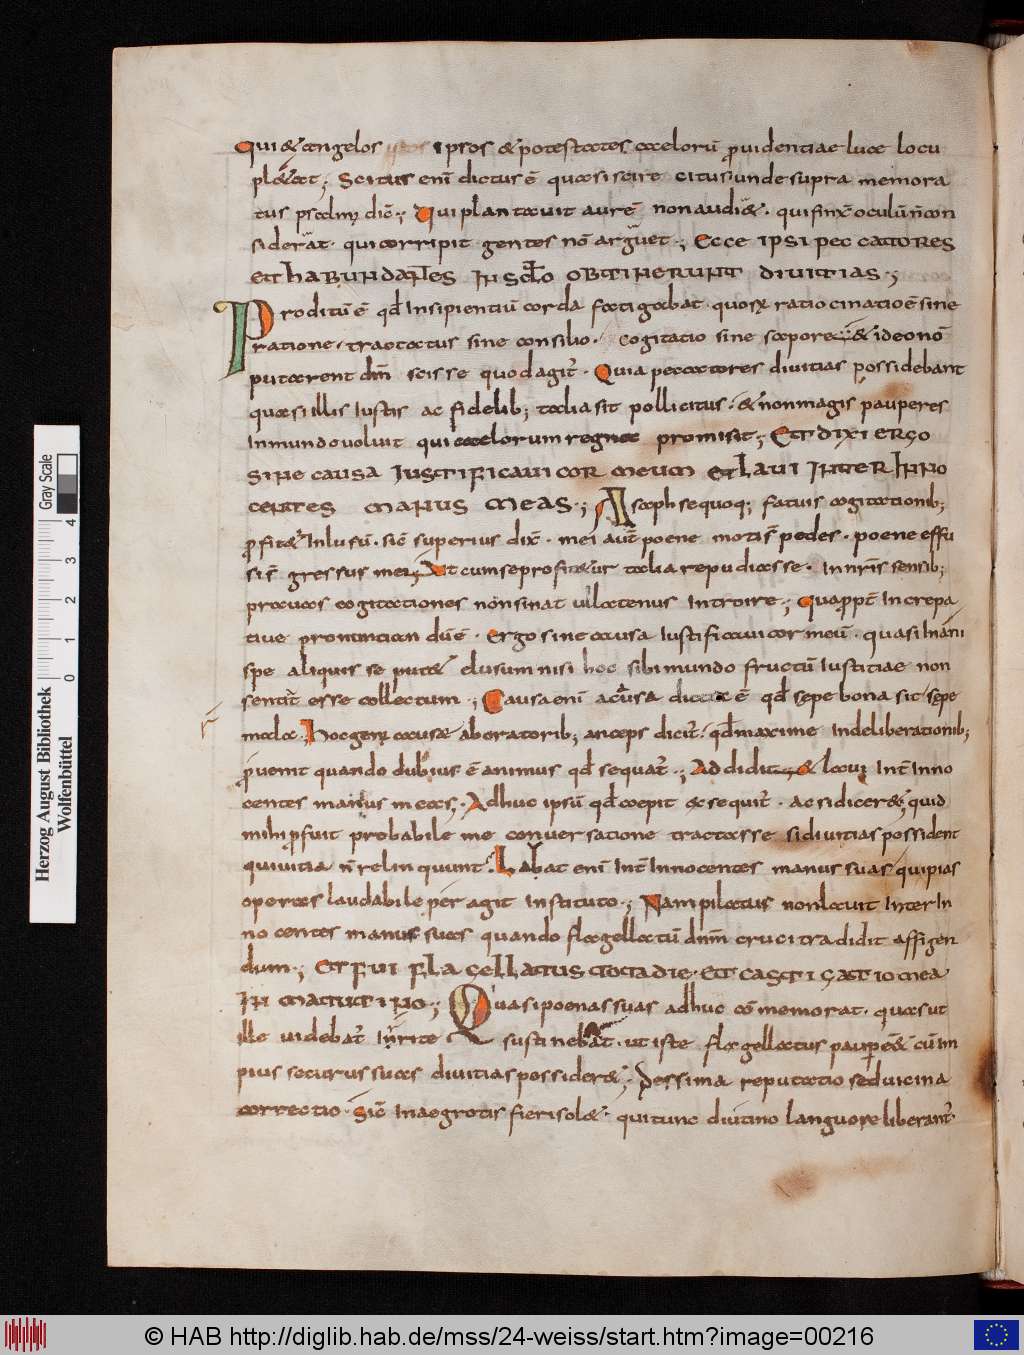 Qui & angelos ipsos & potestates caelorū ꝓuidentiae luce locu
pl&at; Scitus enī dictus ē quasi scire citus unde supra memora
tus psalmꝰ dic̄; Qui plantauit aurē non audi&. qui finx̄ oculū n̄ con
siderat. qui corripit gentes nō arguet; Ecce ipsi peccatores
et habundantes in sclo obtinerunt diuitias;
Proditū ē qđ insipientiū corda fatigabat. quorꝝ ratiocinatio ē sine
ratione. tractatus sine consilio. cogitatio sine sapore & ideo nō
putarent dm̄ scisse quod agit̄. Quia peccatores diuitias possidebant
quasi illis iustis ac fidelib; talia sit pollicitus. & non magis pauperes
in mundo voluit qui caelorum regna promisit; Et dixi ergo
sine causa iustificaui cor meum et laui inter inno
centes manus meas; Asaph se quoq; fatuis cogitationib;
ꝓfit&̄ inlusū. sic̄ superius dix̄. mei aut̄ poene moti s̄ pedes. poene effu
si s̄ gressus mei; Ut cum se profit&ur talia repudiasse. In nr̄is sensib;
prauas cogitationes non sinat ullatenus introire; Quaꝓpt̄ increpa
tiue pronuntiandū ē. Ergo sine causa iustificaui cor meū. quasi inani
spe aliquis se put& elusum nisi hoc sibi mundo fructū iustitiae non
sentit̄ esse collectum; Causa enī a casu dicta ē qđ sępe bona sit sępe
mala. Hoc genꝰ causae aboratorib; anceps dicit̄. qđ maxime in deliberationib;
ꝓuenit quando dubius ē animus qđ sequat̄; Addidit & laui int̄ inno
centes manus meas; Adhuc ipsū qđ coepit & sequit̄. ac si dicer&; quid
mihi ꝓfuit probabile me conuersatione tractasse si diuitias possident
qui uitia n̄ relinquunt. Labat enī int̄ innocentes manus suas quipias
operas laudabile peragit instituto; Nam pilatus non lauit inter in
nocentes manus suas quando flagellatū dnm̄ cruci tradidit affigen
dum; Et fui flagellatus tota die. et castigatio mea
in matutino; Quasi poenas suas adhuc cōmemorat. quas ut
ille uidebat̄ inrite sustinebat. ut iste flagellatus pauper& cū im
pius securus suas diuitias possider&. Pessima reputatio sed uicina
correctio. Sic̄ in aegrotis fieri sol&. qui tunc diutino languore liberant̄
Herzog August Bibliothek
Wolfenbüttel
Gray Scale
0 1 2 3 4
© HAB http://diglib.hab.de/mss/24-weiss/start.htm?image=00216